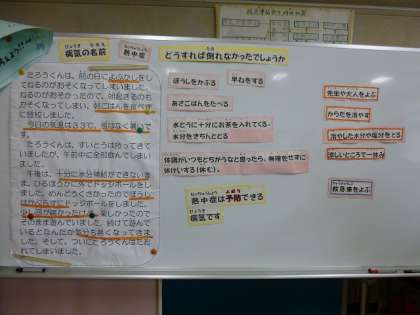 病気の名前
熱中症
たろうくんは、前の日によふかしをして
ねるのがおそくなってしまいました。
ねるのがおそかったので、朝起きるのも
おそくなってしまい、朝ごはんを食べずに
登校しました。
今日の気温は33℃で、風はなく
たろうくんは、すいとうは持ってきて
いましたが、午前中に全部飲んでしまい
ました。
午後は、十分に水分補給ができないま
ま、ひるほうかに外でドッジボールをしま
した。めんどうくさかったのでぼうし
はかぶらずにドッジボールをしました。
少し頭が痛かったけど、楽しかったので
そのまま遊んでいました。続けて遊んで
いるとなんだか気分も悪くなってきま
した。そして、ついにたろうくんはたお
れてしまいました。
どうすれば倒れなかったでしょうか
ぼうしをかぶる
早ねをする
あさごはんをたべる
水とうに十分にお茶を入れてくる。
水分をきちんととる
体調がいつもとちがうなと思ったら、無理をせずに
休けいする(休む)。
熱中症は予防できる
病気です
先生や大人をよぶ
からだを冷やす
冷やした水分や塩分をとる
涼しいところで一休み
救急車をよぶ